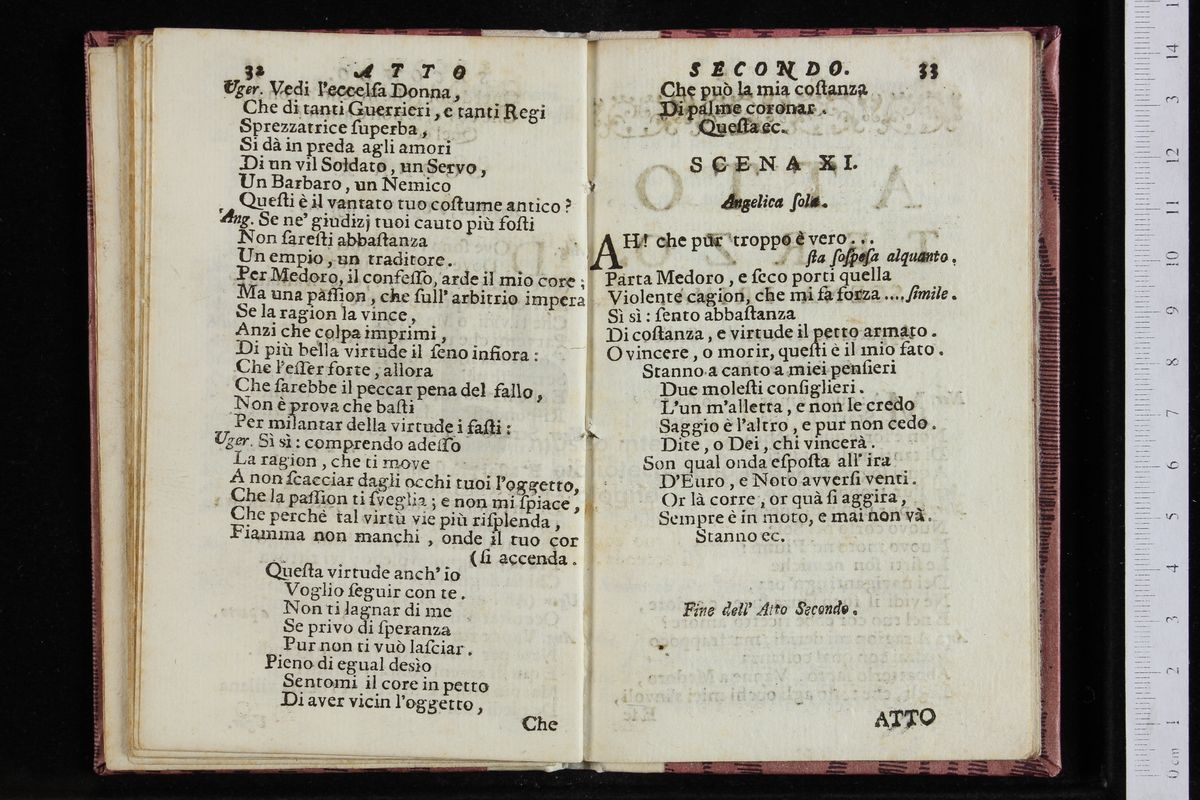 32 ATTO
Uger. Vedi l'eccelſa Donna,
Che di tanti Guerrieri, e tanti Regi
Sprezzatrice ſuperba,
Si dà in preda agli amori
Di un vil Soldato, un Servo,
Un Barbaro, un Nemico
Queſti è il vantato tuo coſtume antico?
Ang. Se ne' giudizj tuoi cauto più foſti
Non fareſti abbaſtanza
Un empio, un traditore.
Per Medoro, il confeſſo, arde il mio core;
Ma una paſſion, che full' arbitrio impera
Se la ragion la vince,
Anzi che colpa imprimi,
Di più bella virtude il ſeno infiora:
Che l'eſſer forte, allora
Che ſarebbe il peccar pena del fallo,
Non è prova che baſti
Per milantar della virtude i faſti:
Uger. Sì sì: comprendo adeſſo
La ragion, che ti move
A non ſcacciar dagli occhi tuoi l'oggetto,
Che la paſſion ti ſveglia; e non mi ſpiace,
Che perchè tal virtù vie più riſplenda,
Fiamma non manchi, onde il tuo cor
(ſi accenda.
Queſta virtude anch' io
Voglio ſeguir con te.
Non ti lagnar di me
Se privo di ſperanza
Pur non ti vuò laſciar.
Pieno di egual desìo
Sentomi il core in petto
Di aver vicin l'oggetto,
Che
SECONDO. 33
Che può la mia coſtanza
Di palme coronar.
Queſta ec.
SCENA XI.
Angelica ſola.
AH! che pur troppo è vero...
ſta ſoſpeſa alquanto.
Parta Medoro, e ſeco porti quella
Violente cagion, che mi fa forza.... ſimile.
Sì sì: ſento abbaſtanza
Di coſtanza, e virtude il petto armato.
O vincere, o morir, queſti è il mio fato.
Stanno a canto a miei penſieri
Due moleſti conſiglieri.
L'un m'alletta, e non le credo
Saggio è l'altro, e pur non cedo.
Dite, o Dei, chi vincerà.
Son qual onda eſpoſta all' ira
D'Euro, e Noto avverſi venti.
Or là corre, or quà ſi aggira,
Sempre è in moto, e mai non và.
Stanno ec.
Fine dell' Atto Secondo.
ATTO
14
13
12
11
10
9
8
7
6
5
4
3
2
1
0 cm